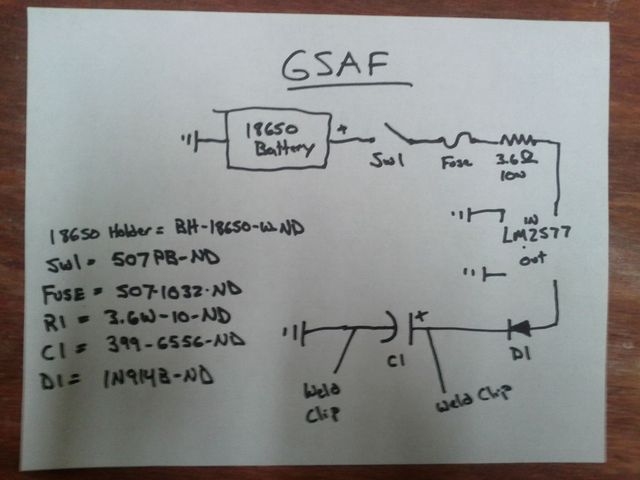 GSAF
18650
Battery
+
SW1
Fuse
3.6Ω
10W
IN
LM2577
out
D1
+
C1
Weld
Clip
Weld Clip
18650 Holder = BH-18650-W-ND
SW1 = 507PB-ND
FUSE = 507-1032-ND
R1 = 3.6W-10-ND
C1 = 399-6556-ND
D1 = 1N914B-ND